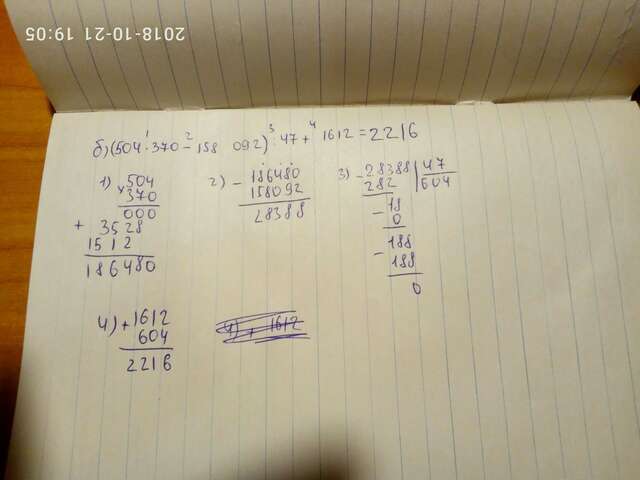 2018-10-21 19:05
б)(504·370-158 092):47+1612=2216
1 2 3 4
1) 504
×370
000
+ 3528
1512
186480
2) - 186480
158092
28388
3) - 28388 | 47
282 604
- 18
0
- 188
188
0
4) + 1612
604
2216
4) + 1612